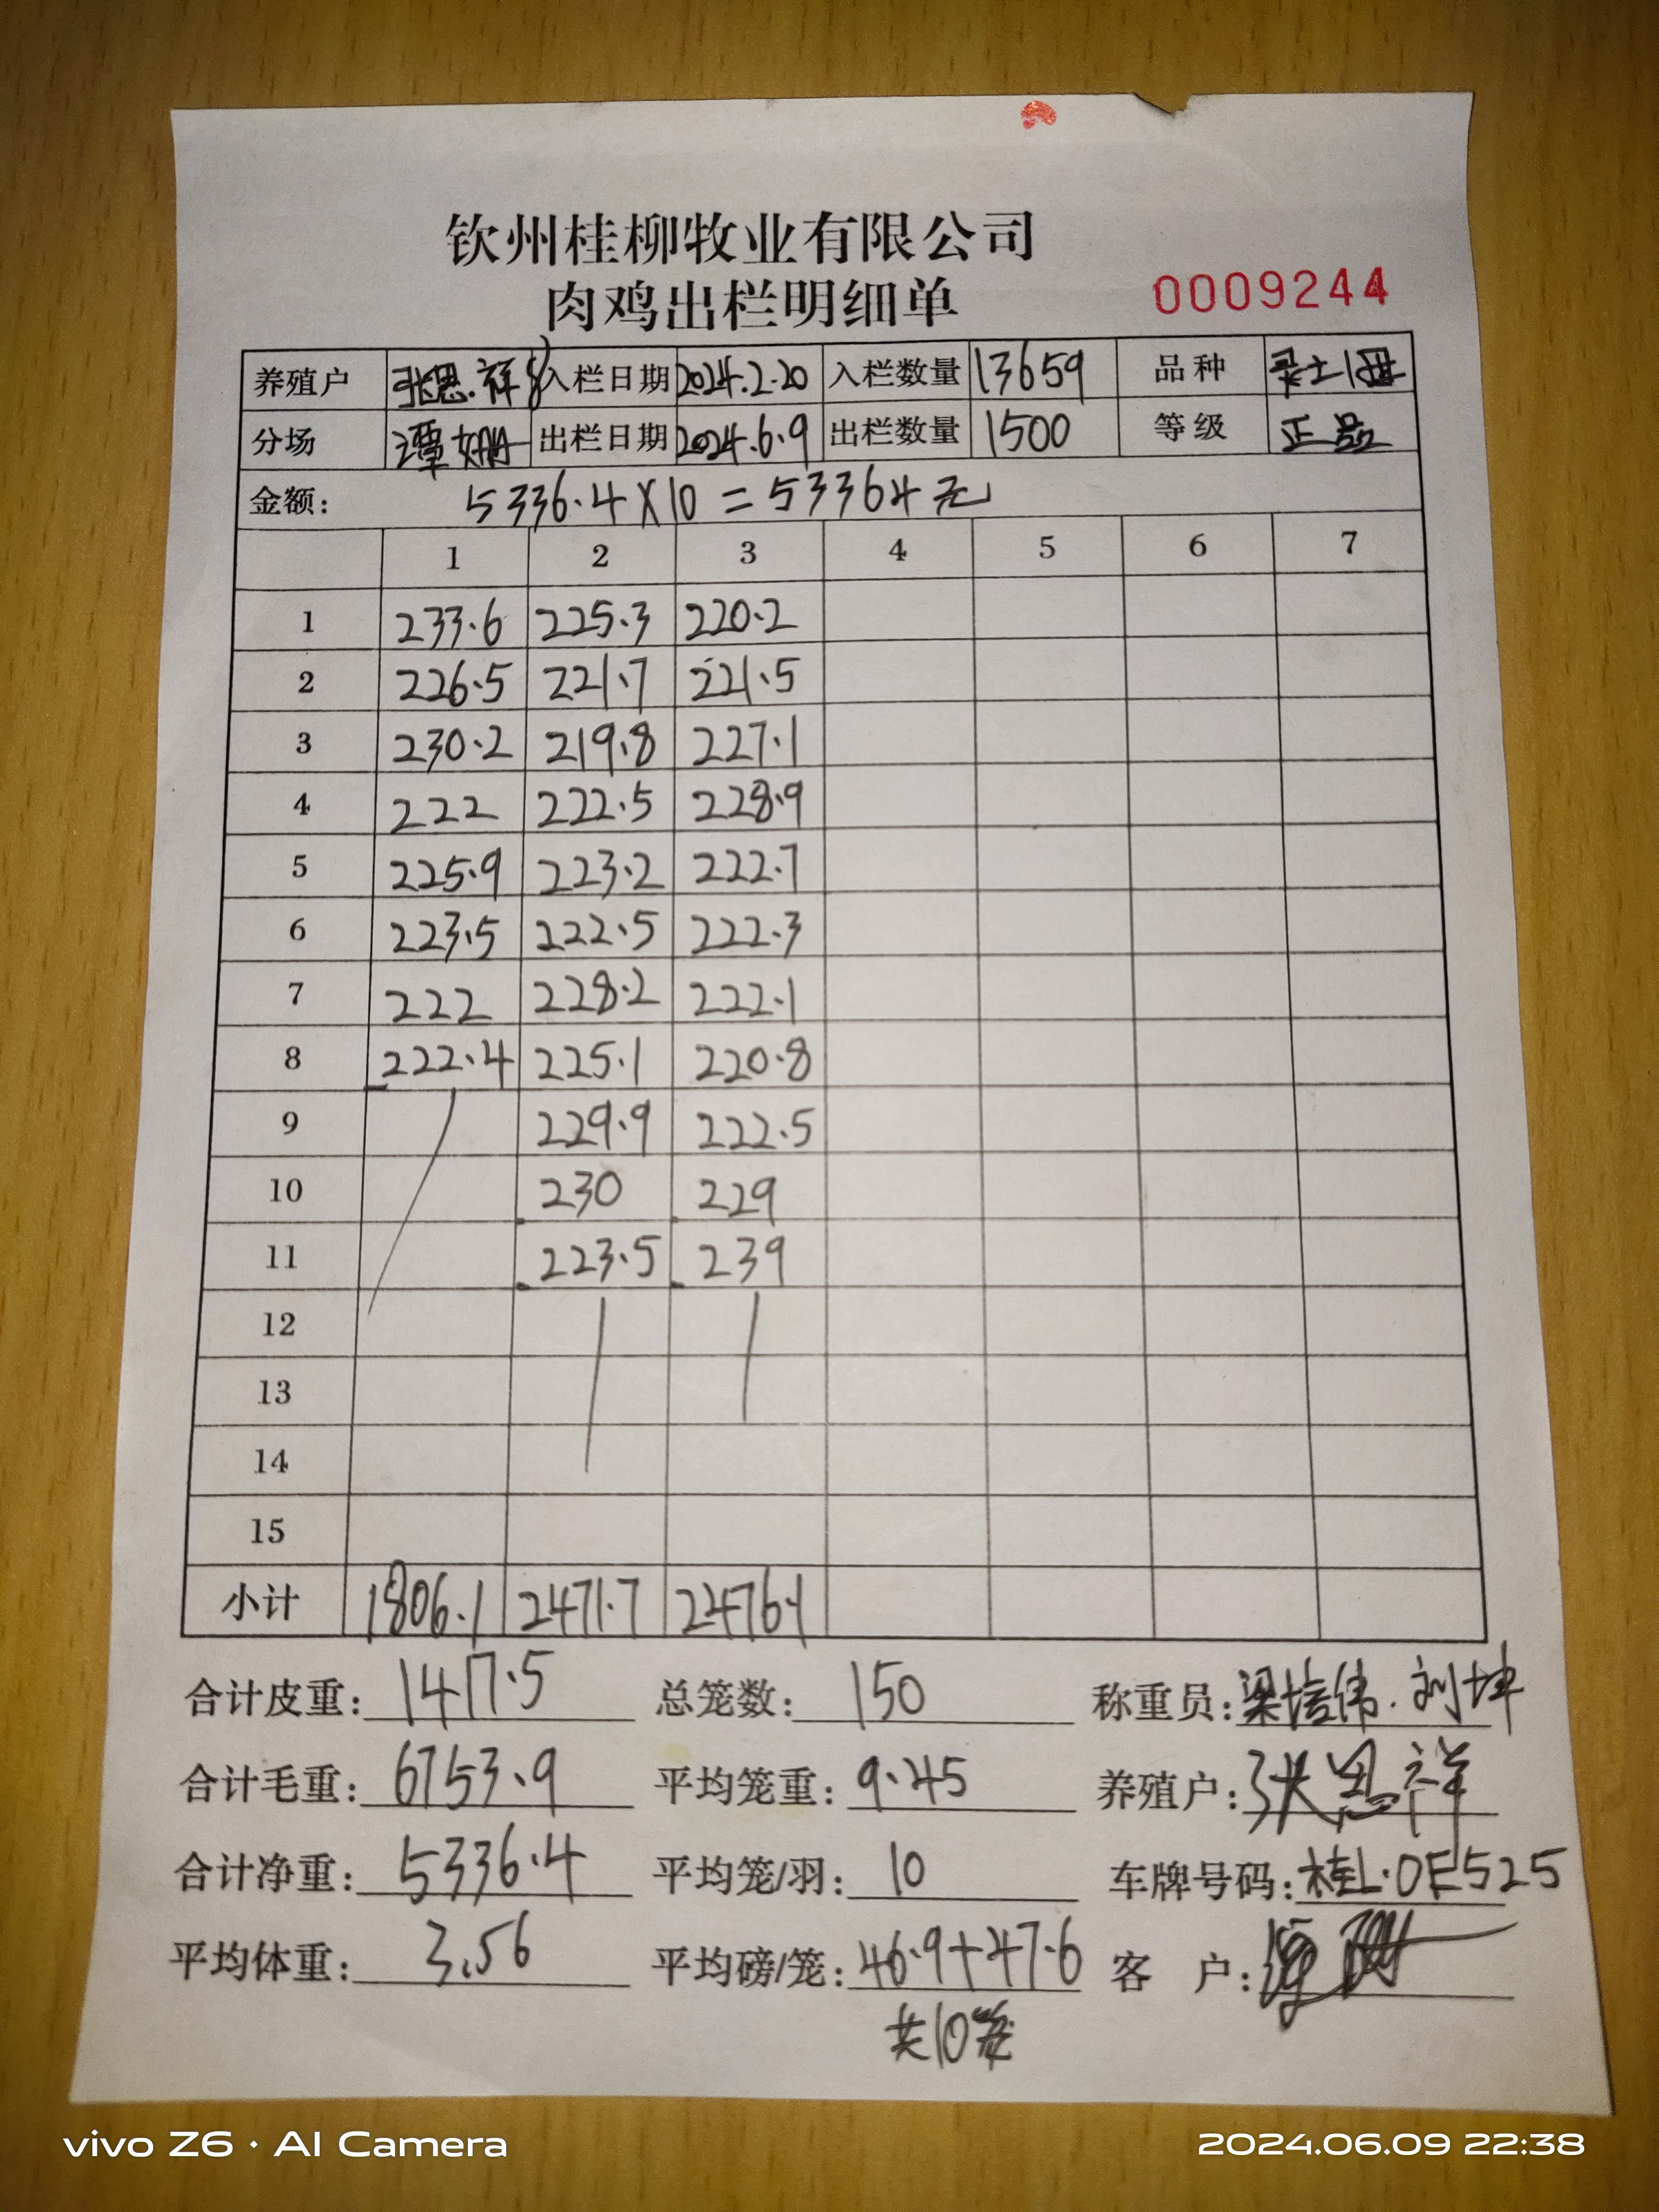 钦州桂柳牧业有限公司
肉鸡出栏明细单
0009244
养殖户 张思.祥 入栏日期 2024.2.20 入栏数量 13659 品种
分场 谭姗 出栏日期 2024.6.9 出栏数量 1500 等级 正品
金额: 5336.4X10=53364元
1 2 3 4 5 6 7
1 233.6 225.3 220.2
2 226.5 221.7 221.5
3 230.2 219.8 227.1
4 222 222.5 228.9
5 225.9 223.2 222.7
6 223.5 222.5 222.3
7 222 228.2 222.1
8 222.4 225.1 220.8
9 229.9 222.5
10 230 229
11 223.5 239
12
13
14
15
小计 1806.1 2471.7 2476.1
合计皮重: 1417.5 总笼数: 150 称重员: 梁培伟.刘坤
合计毛重: 6753.9 平均笼重: 9.45 养殖户: 张思祥
合计净重: 5336.4 平均笼/羽: 10 车牌号码: 桂L.0E525
平均体重: 3.56 平均磅/笼: 46.9+47.6 客 户:
共10笼
vivo Z6 · AI Camera
2024.06.09 22:38